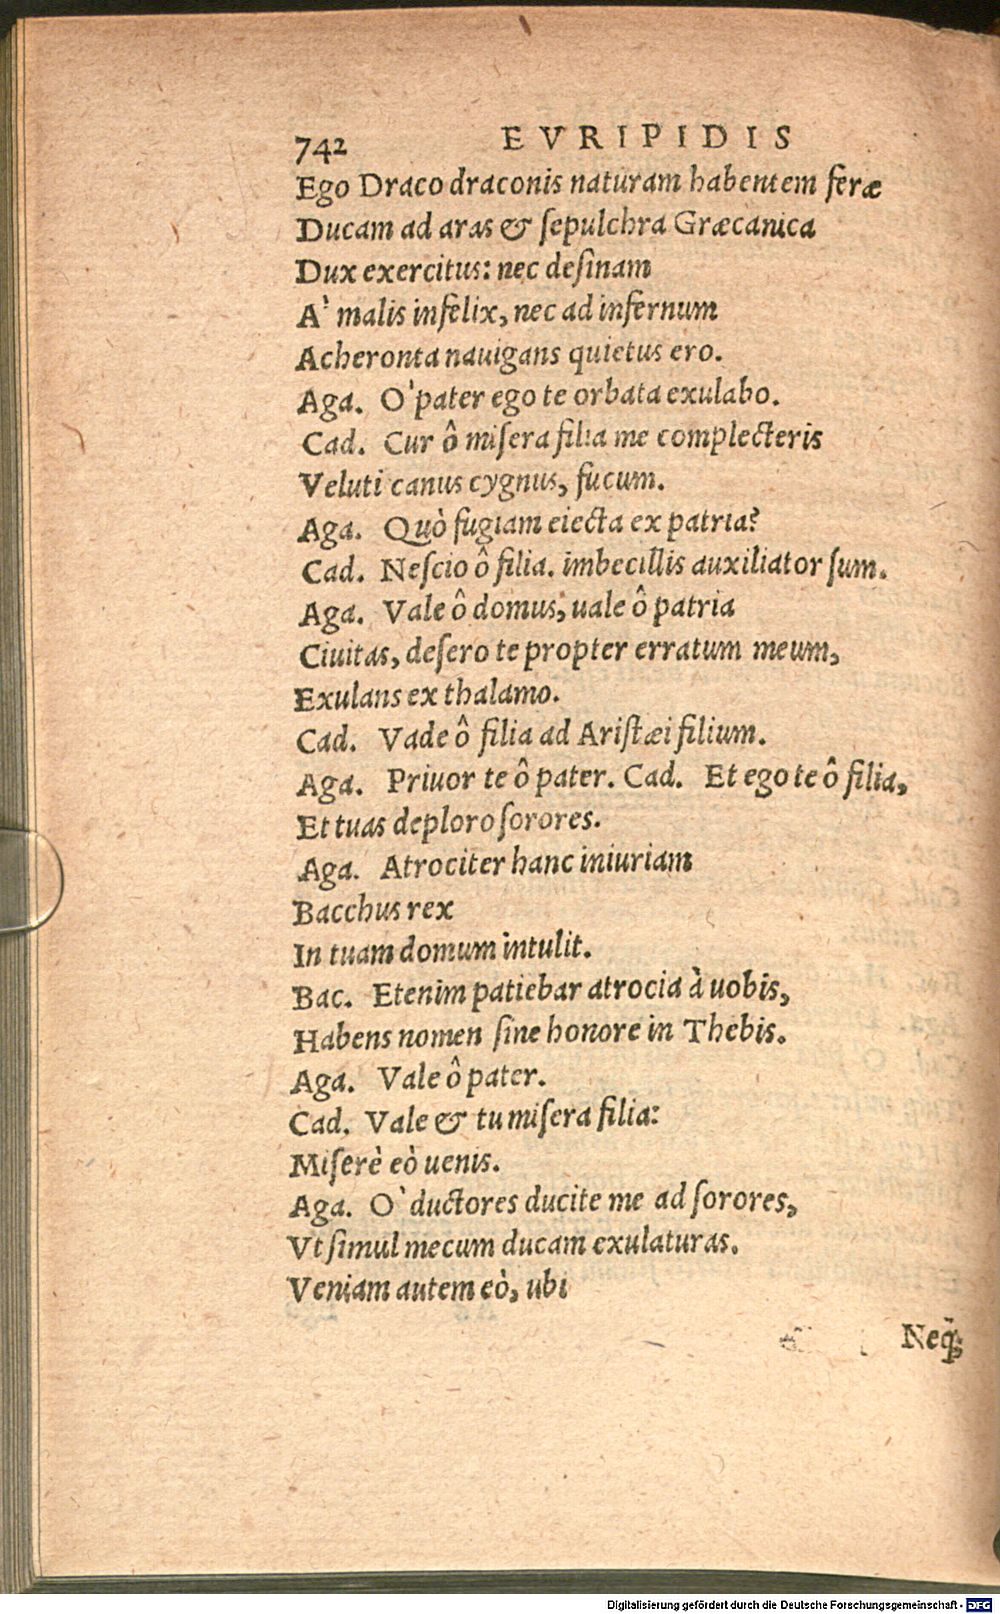 742 EVRIPIDIS
Ego Draco draconis naturam habentem feræ
Ducam ad aras & ſepulchra Græcanica
Dux exercitus: nec deſinam
A` malis infelix, nec ad infernum
Acheronta nauigans quietus ero.
Aga. O` pater ego te orbata exulabo.
Cad. Cur ô miſera filia me complecteris
Veluti canus cygnus, fucum.
Aga. Quò fugiam eiecta ex patria?
Cad. Neſcio ô filia. imbecillis auxiliator ſum.
Aga. Vale ô domus, uale ô patria
Ciuitas, deſero te propter erratum meum,
Exulans ex thalamo.
Cad. Vade ô filia ad Ariſtæi filium.
Aga. Priuor te ô pater. Cad. Et ego te ô filia,
Et tuas deploro ſorores.
Aga. Atrociter hanc iniuriam
Bacchus rex
In tuam domum intulit.
Bac. Etenim patiebar atrocia à uobis,
Habens nomen ſine honore in Thebis.
Aga. Vale ô pater.
Cad. Vale & tu miſera filia:
Miſerè eò uenis.
Aga. O` ductores ducite me ad ſorores,
Vt ſimul mecum ducam exulaturas.
Veniam autem eò, ubi
Neq;
Digitalisierung gefördert durch die Deutsche Forschungsgemeinschaft - DFG